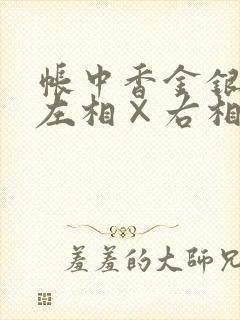 帳中香金銀
左相×右相
羞羞的大師兄